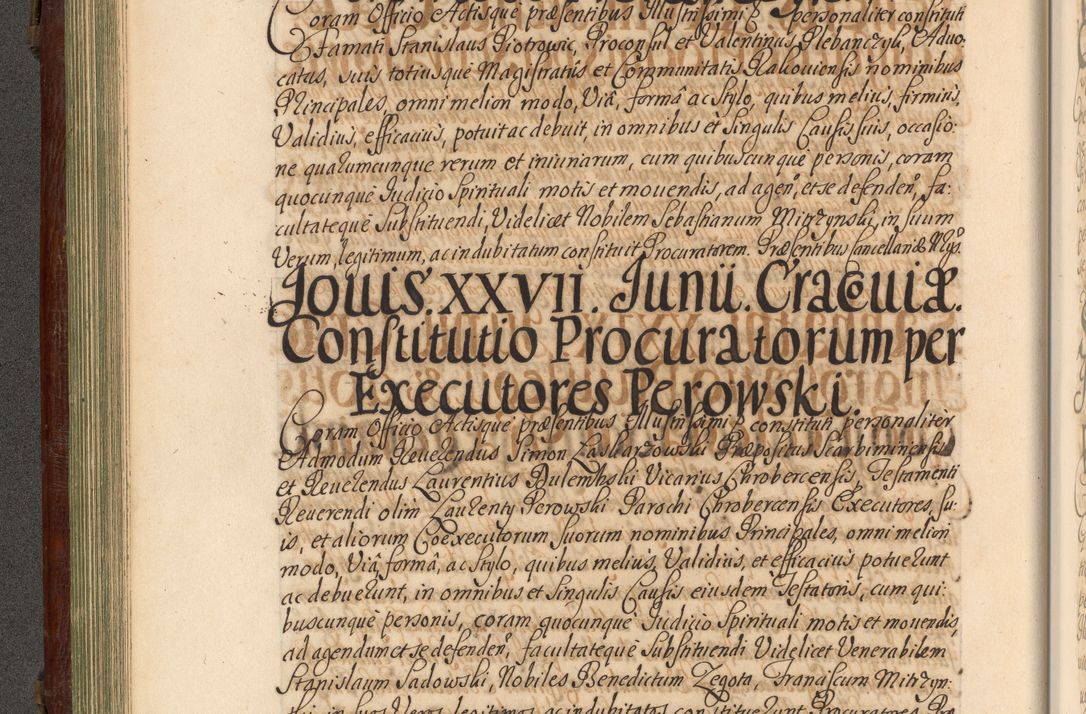 Coram Officio Actisque præsentibus Illustrissimi p personaliter constituti
Famati Stanislaus Piotrowic, Proconsul et Valentinus Plebanczyk, Aduo-
catus, suis totiusque Magistratûs et Communitatis Rakouiensis nominibus
Principales, omni meliori modo, Viâ, formâ ac stylo, quibus melius, firmius,
Validius, efficacius, potuit ac debuit, in omnibus et singulis Causis suis, occasio-
ne quarumcunque rerum et iniuriarum, cum quibuscunque personis, coram
quocunque Iudicio Spirituali motis et mouendis, ad agen. et se defenden. fa-
cultateque Substituendi, Videlicet Nobilem Sebastianum Mirzynski, in suum
Verum, legitimum, ac indubitatum constituit Procuratorem. Præsentibus Cancellariæ
Iouis. XXVII. Iunii. Cracouiæ.
Constitutio Procuratorum per
Executores Perowski.
Coram Officio Actisque præsentibus Illustrissimi p constituti personaliter
Admodum Reuerendus Simon Laskarzowski Præpositus Skarbiminensis
et Reuerendus Laurentius Dulembski Vicarius Chrobercensis, Testamenti
Reuerendi olim Laurenty Perowski Parochi Chrobercensis Executores, su-
is, et aliorum Coexecutorum suorum nominibus Principales, omni meliori
modo, Viâ, formâ, ac stylo, quibus melius, Validius, et efficacius potuerunt
ac debuerunt, in omnibus et singulis Causis eiusdem Testatoris, cum qui-
buscunque personis, coram quocunque Iudicio Spirituali motis et mouendis,
ad agendum et se defenden. facultateque Substituendi Videlicet Venerabilem
Stanislaum Sadowski, Nobiles Benedictum Zegota, Franciscum Mirzyn-
ski, in suos Veros legitimos ac indubitatos constituerunt Procuratores